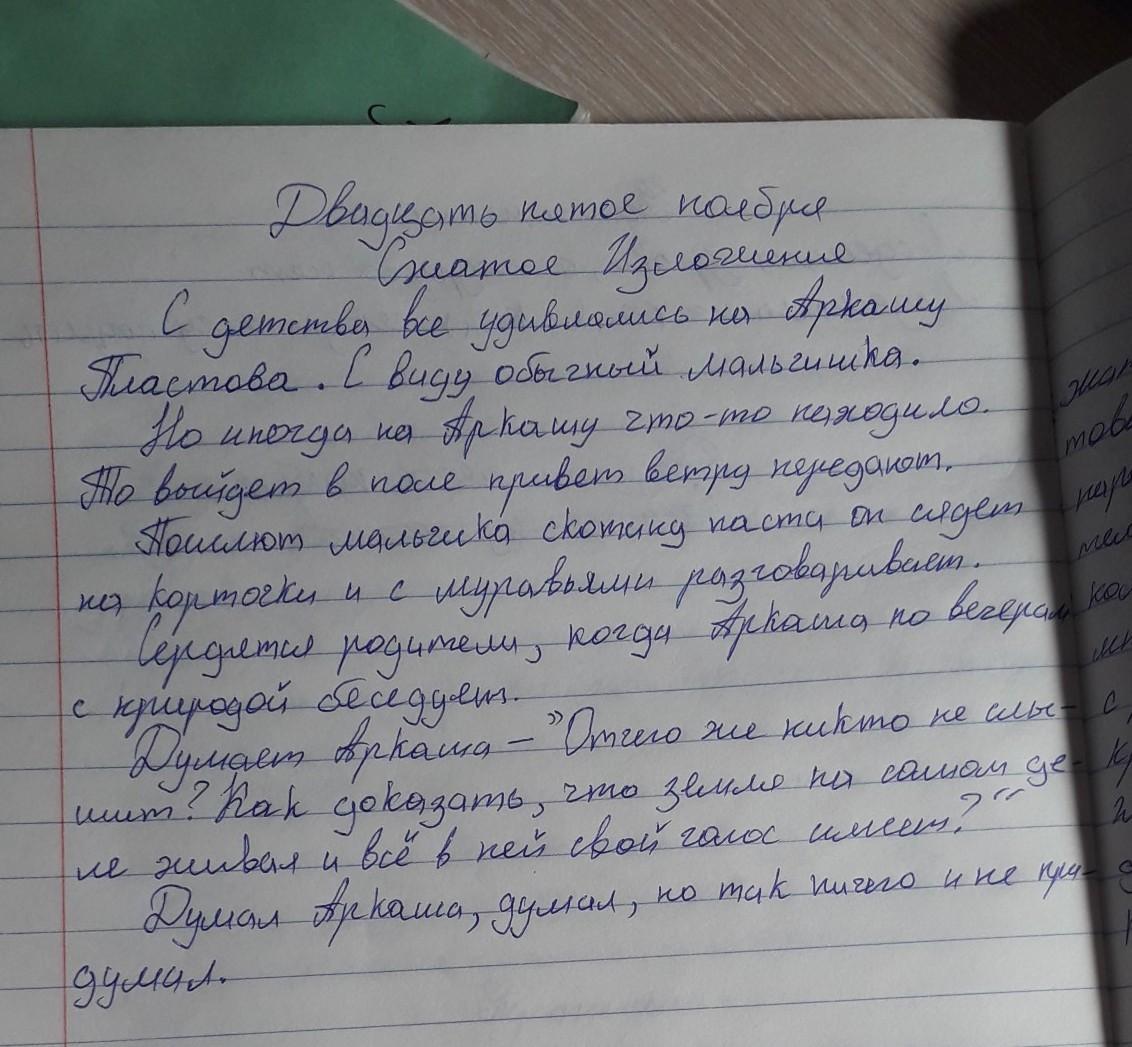 Двадцать пятое ноября
Сжатое Изложения
С детства все удивлялись на Аркашу
Пластова. С виду обычный мальчишка.
Но иногда на Аркашу что-то находило.
То выйдет в поле привет ветру передают.
Пошлют мальчика скотину пасти он сядет
на корточки и с муравьями разговаривает.
Сердятся родители, когда Аркаша по вечерам
с природой беседует.
Думает Аркаша – "Отчего же никто не слы-
шит? Как доказать, что земля на самом де-
ле живая и всё в ней свой голос имеет?"
Думал Аркаша, думал, но так ничего и не при-
думал.